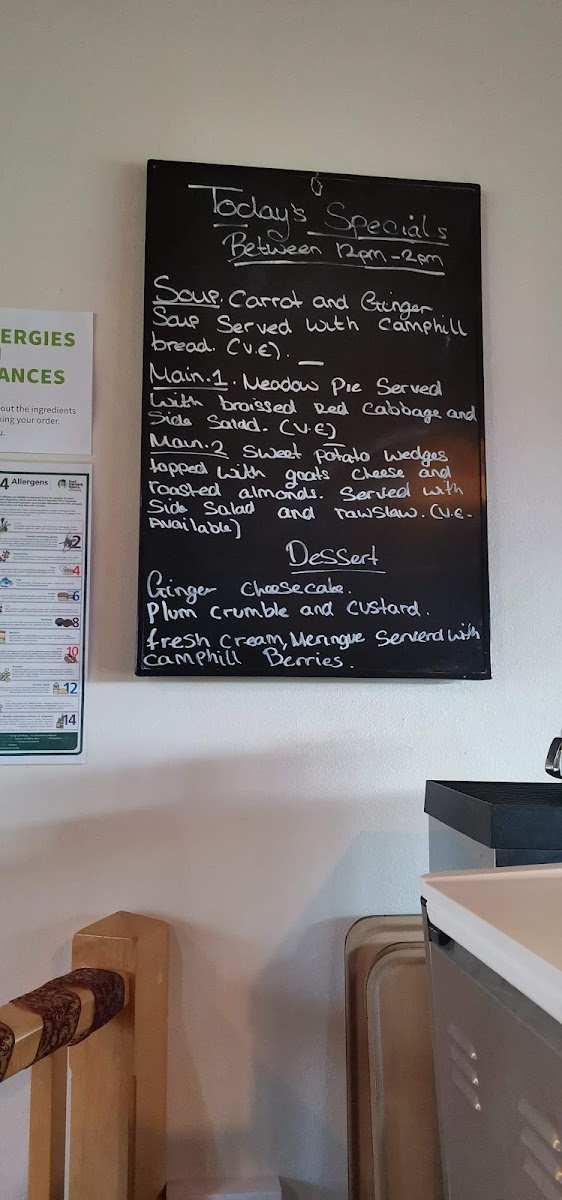 Today's Specials
Between 12pm - 2pm
Soup. Carrot and Ginger
Soup Served with Camphill
bread. (V.E).
Main.1. Meadow Pie Served
with braissed Red Cabbage and
Side Salad. (V.E)
Main.2 Sweet Potato wedges
topped with goats cheese and
roasted almonds. Served with
Side Salad and rawslaw. (V.E.
Available)
Dessert
Ginger cheesecake.
Plum crumble and custard.
fresh cream, Meringue Serverd with
camphill Berries.
ERGIES
ANCES
out the ingredients
king your order.
u.
4 Allergens
2
4
6
8
10
12
14